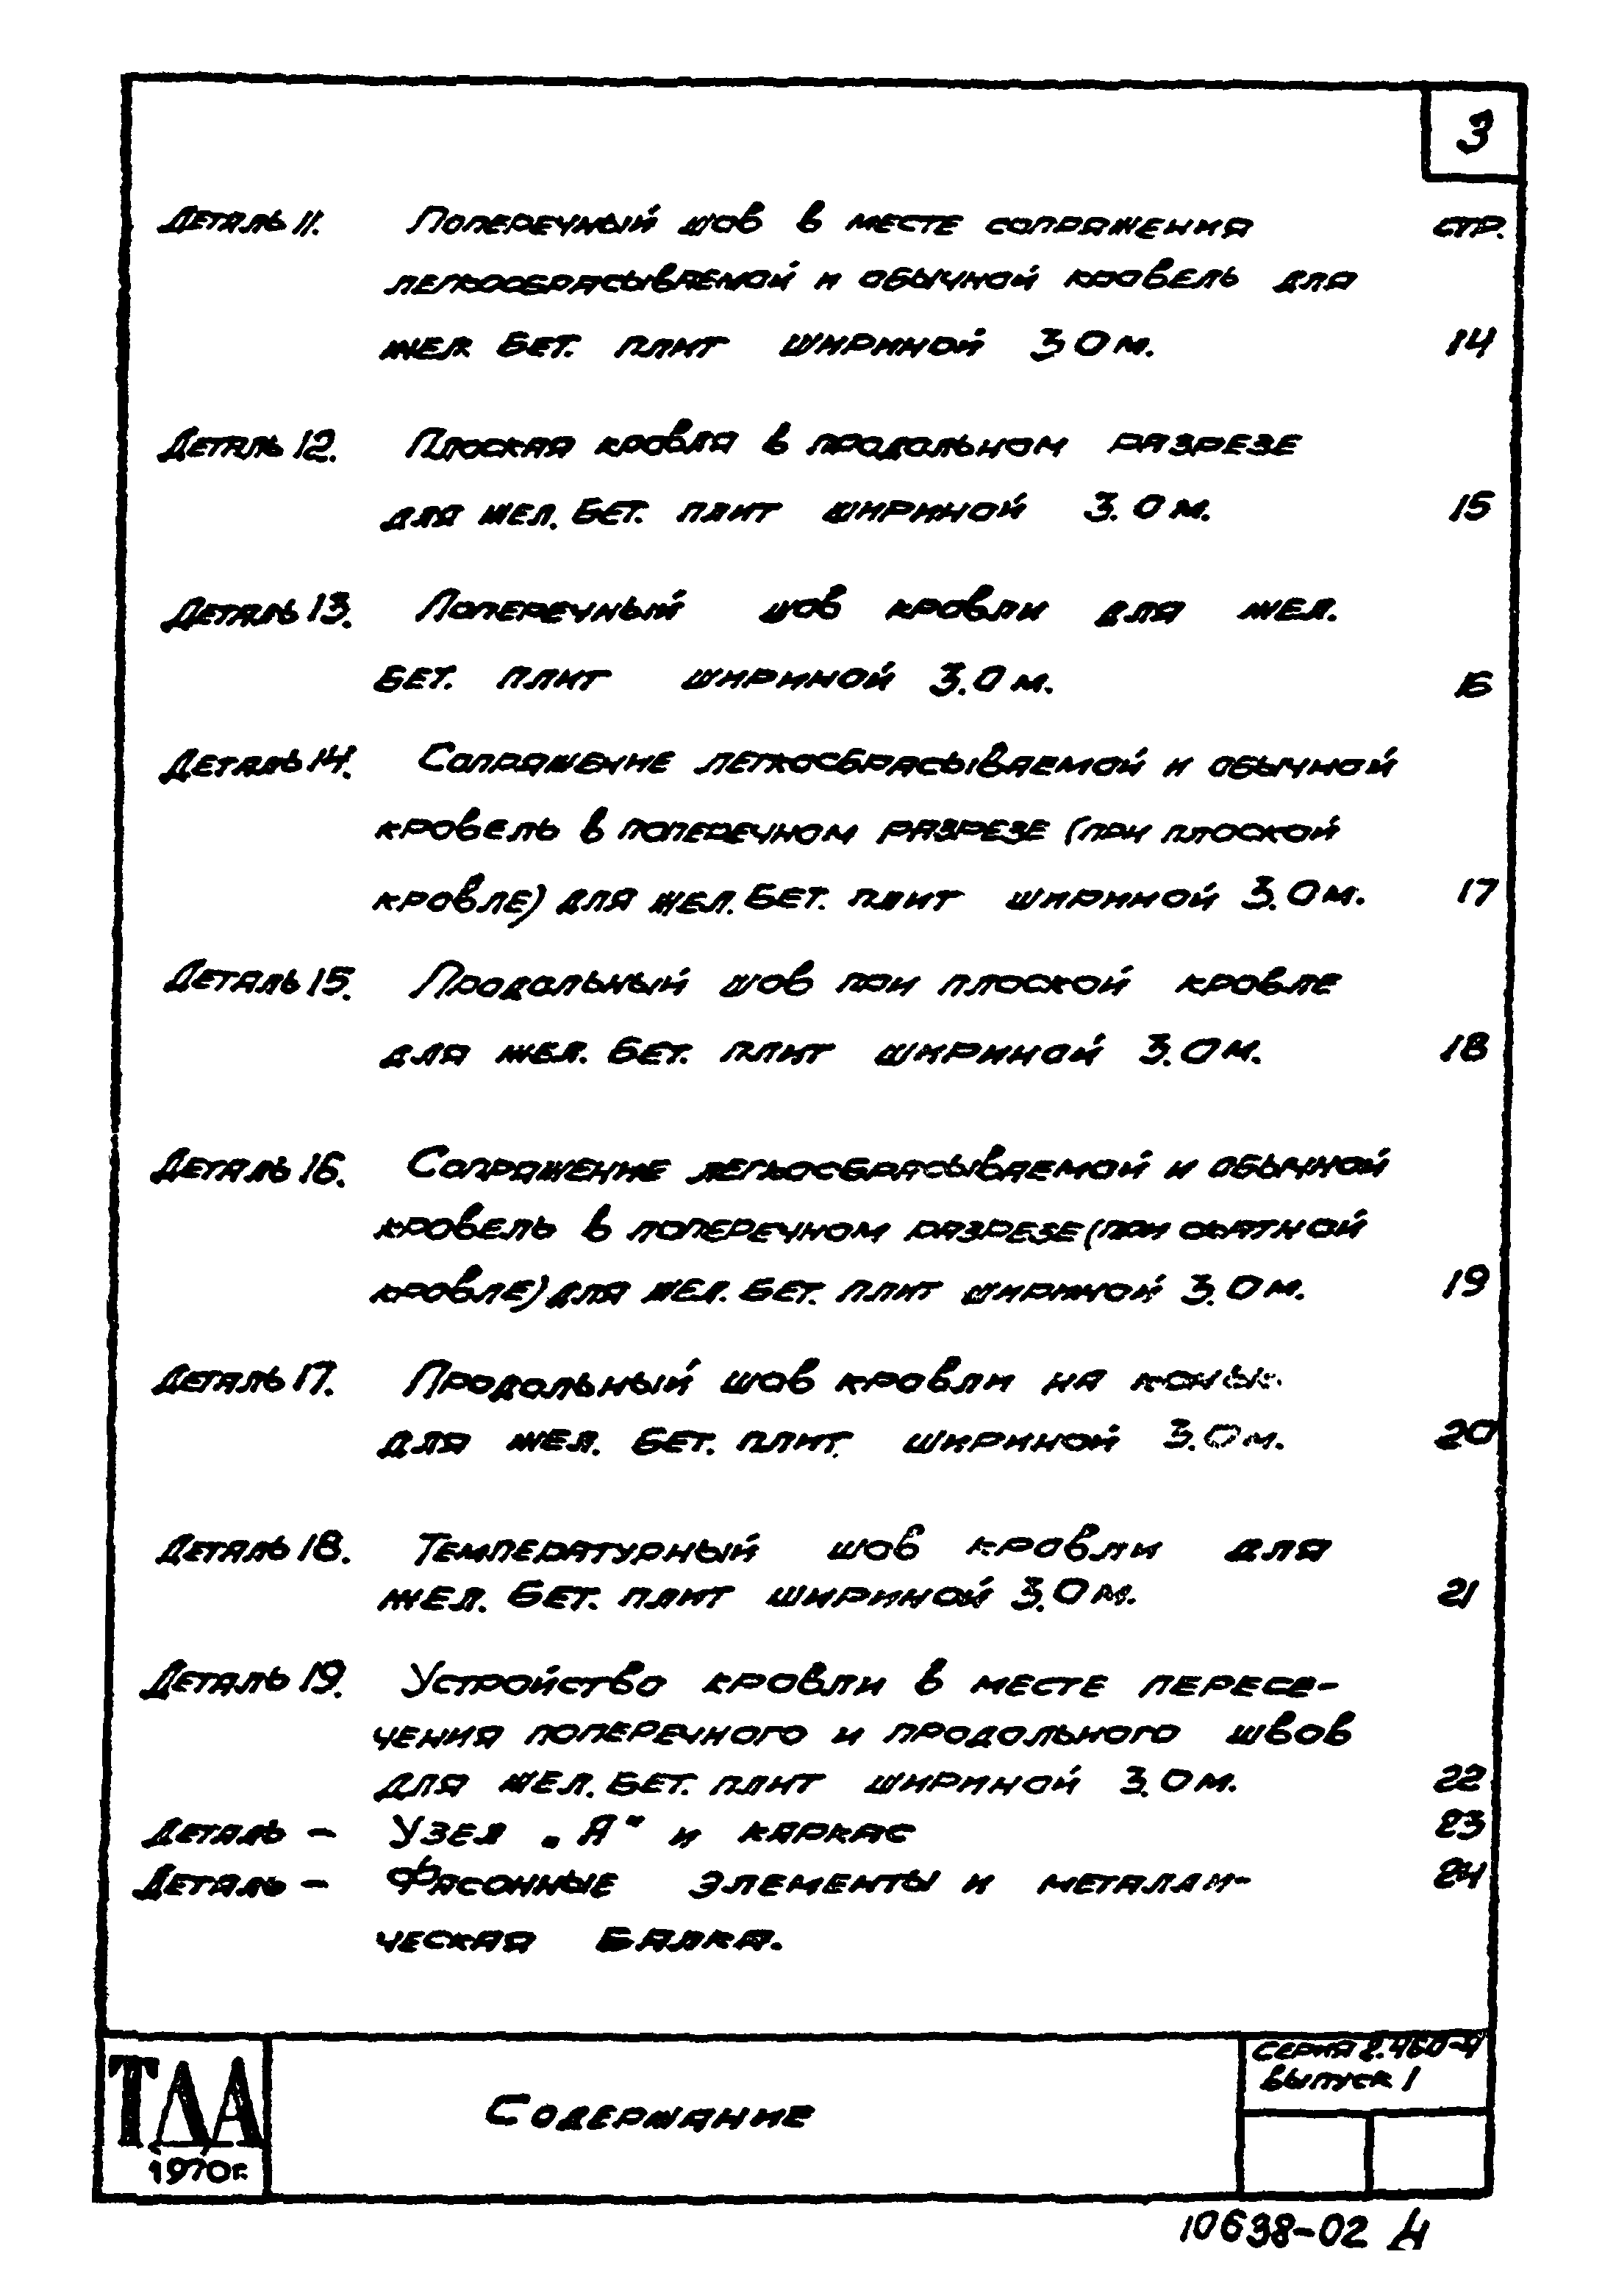 3
Деталь 11. Поперечный шов в месте сопряжения стр.
легкосбрасываемой и обычной кровель для
жел бет. плит шириной 3 0 м. 14
Деталь 12. Плоская кровля в продольном разрезе
для жел. бет. плит шириной 3.0 м. 15
Деталь 13. Поперечный шов кровли для жел.
бет. плит шириной 3.0 м. 16
Деталь 14. Сопряжение легкосбрасываемой и обычной
кровель в поперечном разрезе (при плоской
кровле) для жел. бет. плит шириной 3.0 м. 17
Деталь 15. Продольный шов при плоской кровле
для жел. бет. плит шириной 3.0 м. 18
Деталь 16. Сопряжение легкосбрасываемой и обычной
кровель в поперечном разрезе (при скатной
кровле) для жел. бет. плит шириной 3.0 м. 19
Деталь 17. Продольный шов кровли на
для жел. бет. плит шириной 3.0 м. 20
Деталь 18. Температурный шов кровли для
жел. бет. плит шириной 3.0 м. 21
Деталь 19. Устройство кровли в месте пересе-
чения поперечного и продольного швов
для жел. бет. плит шириной 3.0 м. 22
Деталь – Узел „А" и каркас 23
Деталь – Фасонные элементы и металли- 24
ческая балка.
ТДА
1970г.
Содержание
Серия 2.460-4
выпуск 1
10638-02 4